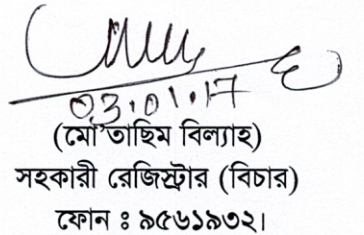 03.01.17
(মো'তাছিম বিল্যাহ)
সহকারী রেজিস্ট্রার (বিচার)
ফোন ঃ ৯৫৬১৯৩২।